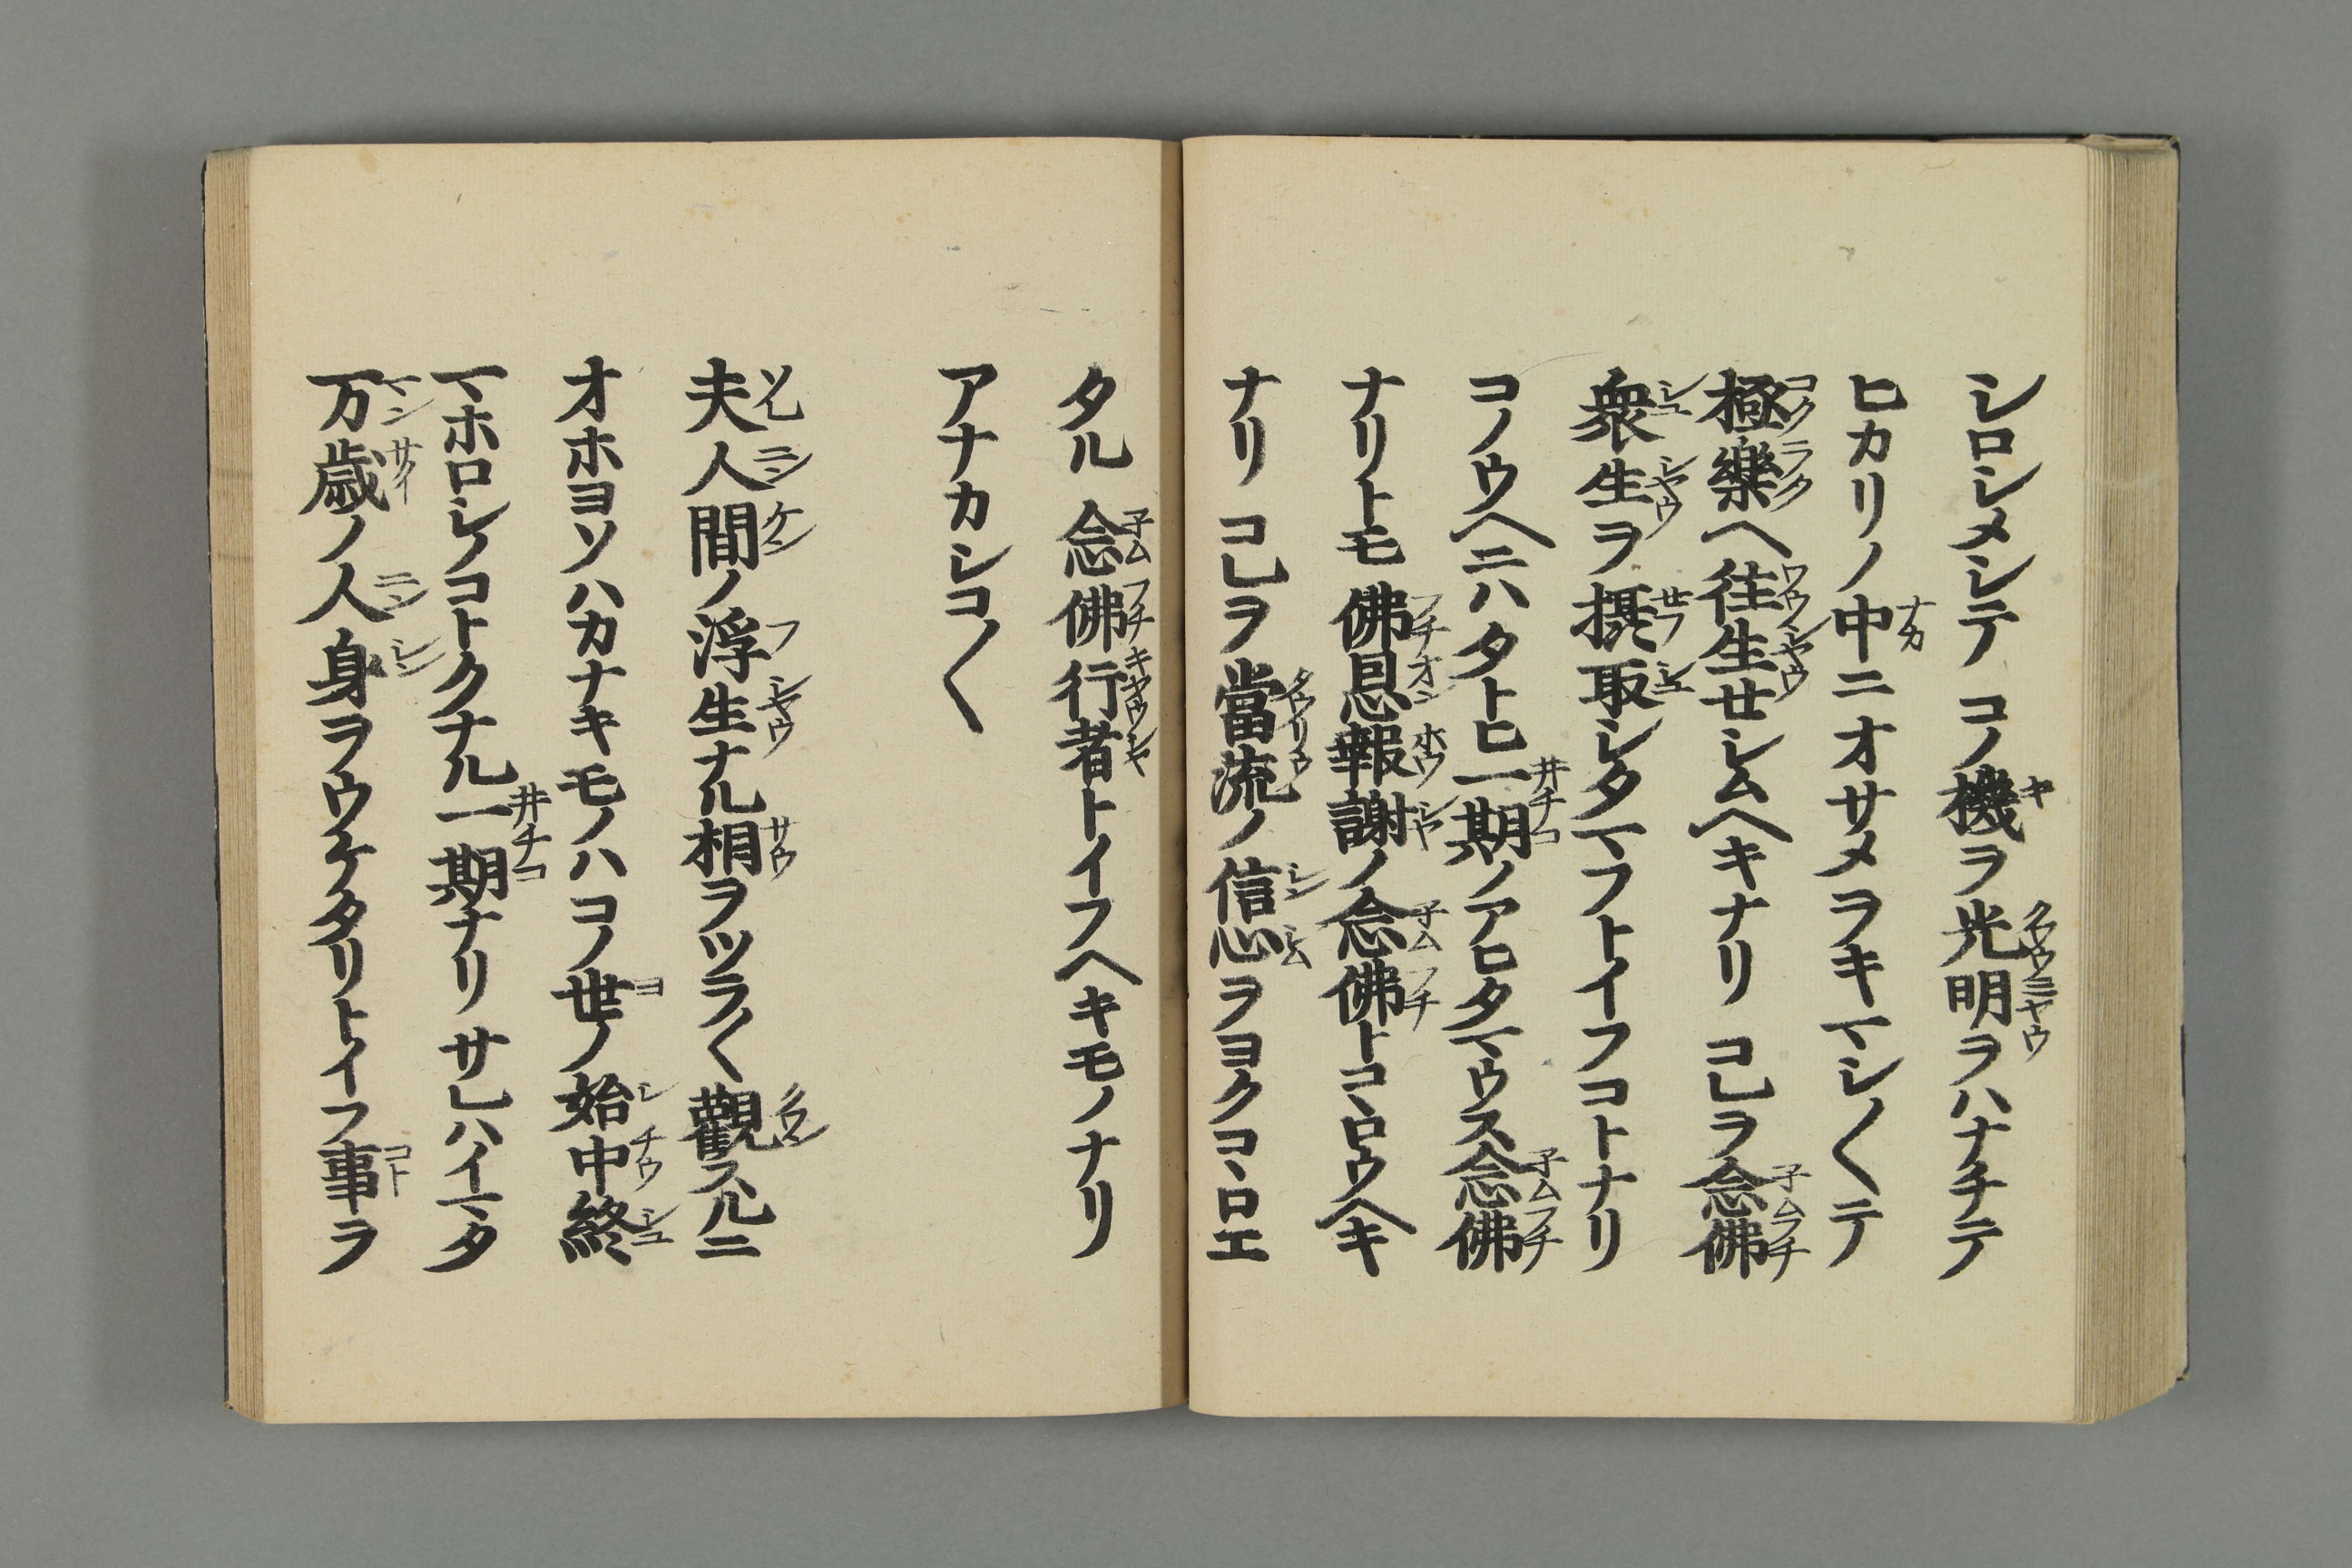 シロシメシテ コノ機ヲ光明ヲハナチテ
ヒカリノ中ニオサメヲキマシ〱テ
極樂ヘ往生せシムヘキナリ コレヲ念佛
衆生ヲ摂取シタマフトイフコトナリ
コノウヘニハタトヒ一期ノアロタマウス念佛
ナリトモ 佛恩報謝ノ念佛トコヽロウヘキ
ナリ コレヲ當流ノ信心ヲヨクコヽロエ
タル 念佛行者トイフヘキモノナリ
アナカシコ〱
夫人間ノ浮生ナル相ヲツラ〱觀スルニ
オホヨソハカナキモノハコノ世ノ始中終
マホロシノコトクナル一期ナリ サレハイマタ
万歳ノ人身ヲウケタリトイフ事ヲ